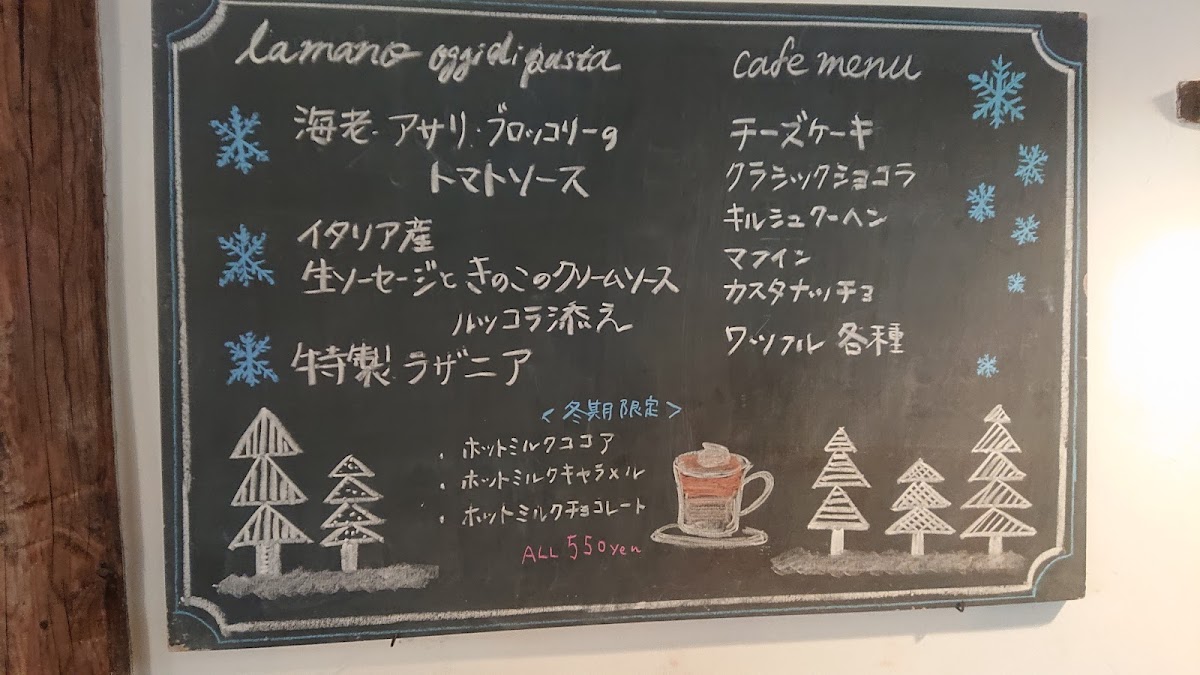 lamano oggi di pasta
海老・アサリ・ブロッコリーの
トマトソース
イタリア産
生ソーセージときのこのクリームソース
ルッコラ添え
特製 ラザニア
cafe menu
チーズケーキ
クラシックショコラ
キルシュクーヘン
マフィン
カスタナッチョ
ワッフル 各種
<冬期限定>
・ホットミルクココア
・ホットミルクキャラメル
・ホットミルクチョコレート
ALL 550yen